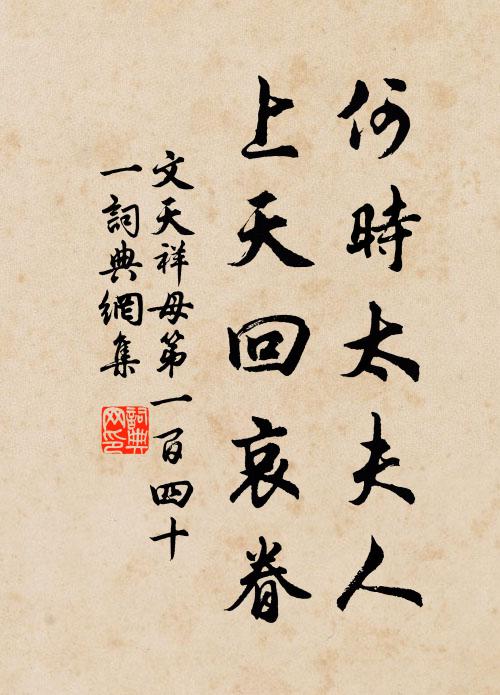 何時太夫人
上天回哀眷
文天祥母第一百四十
一詞典網集
詞典网印